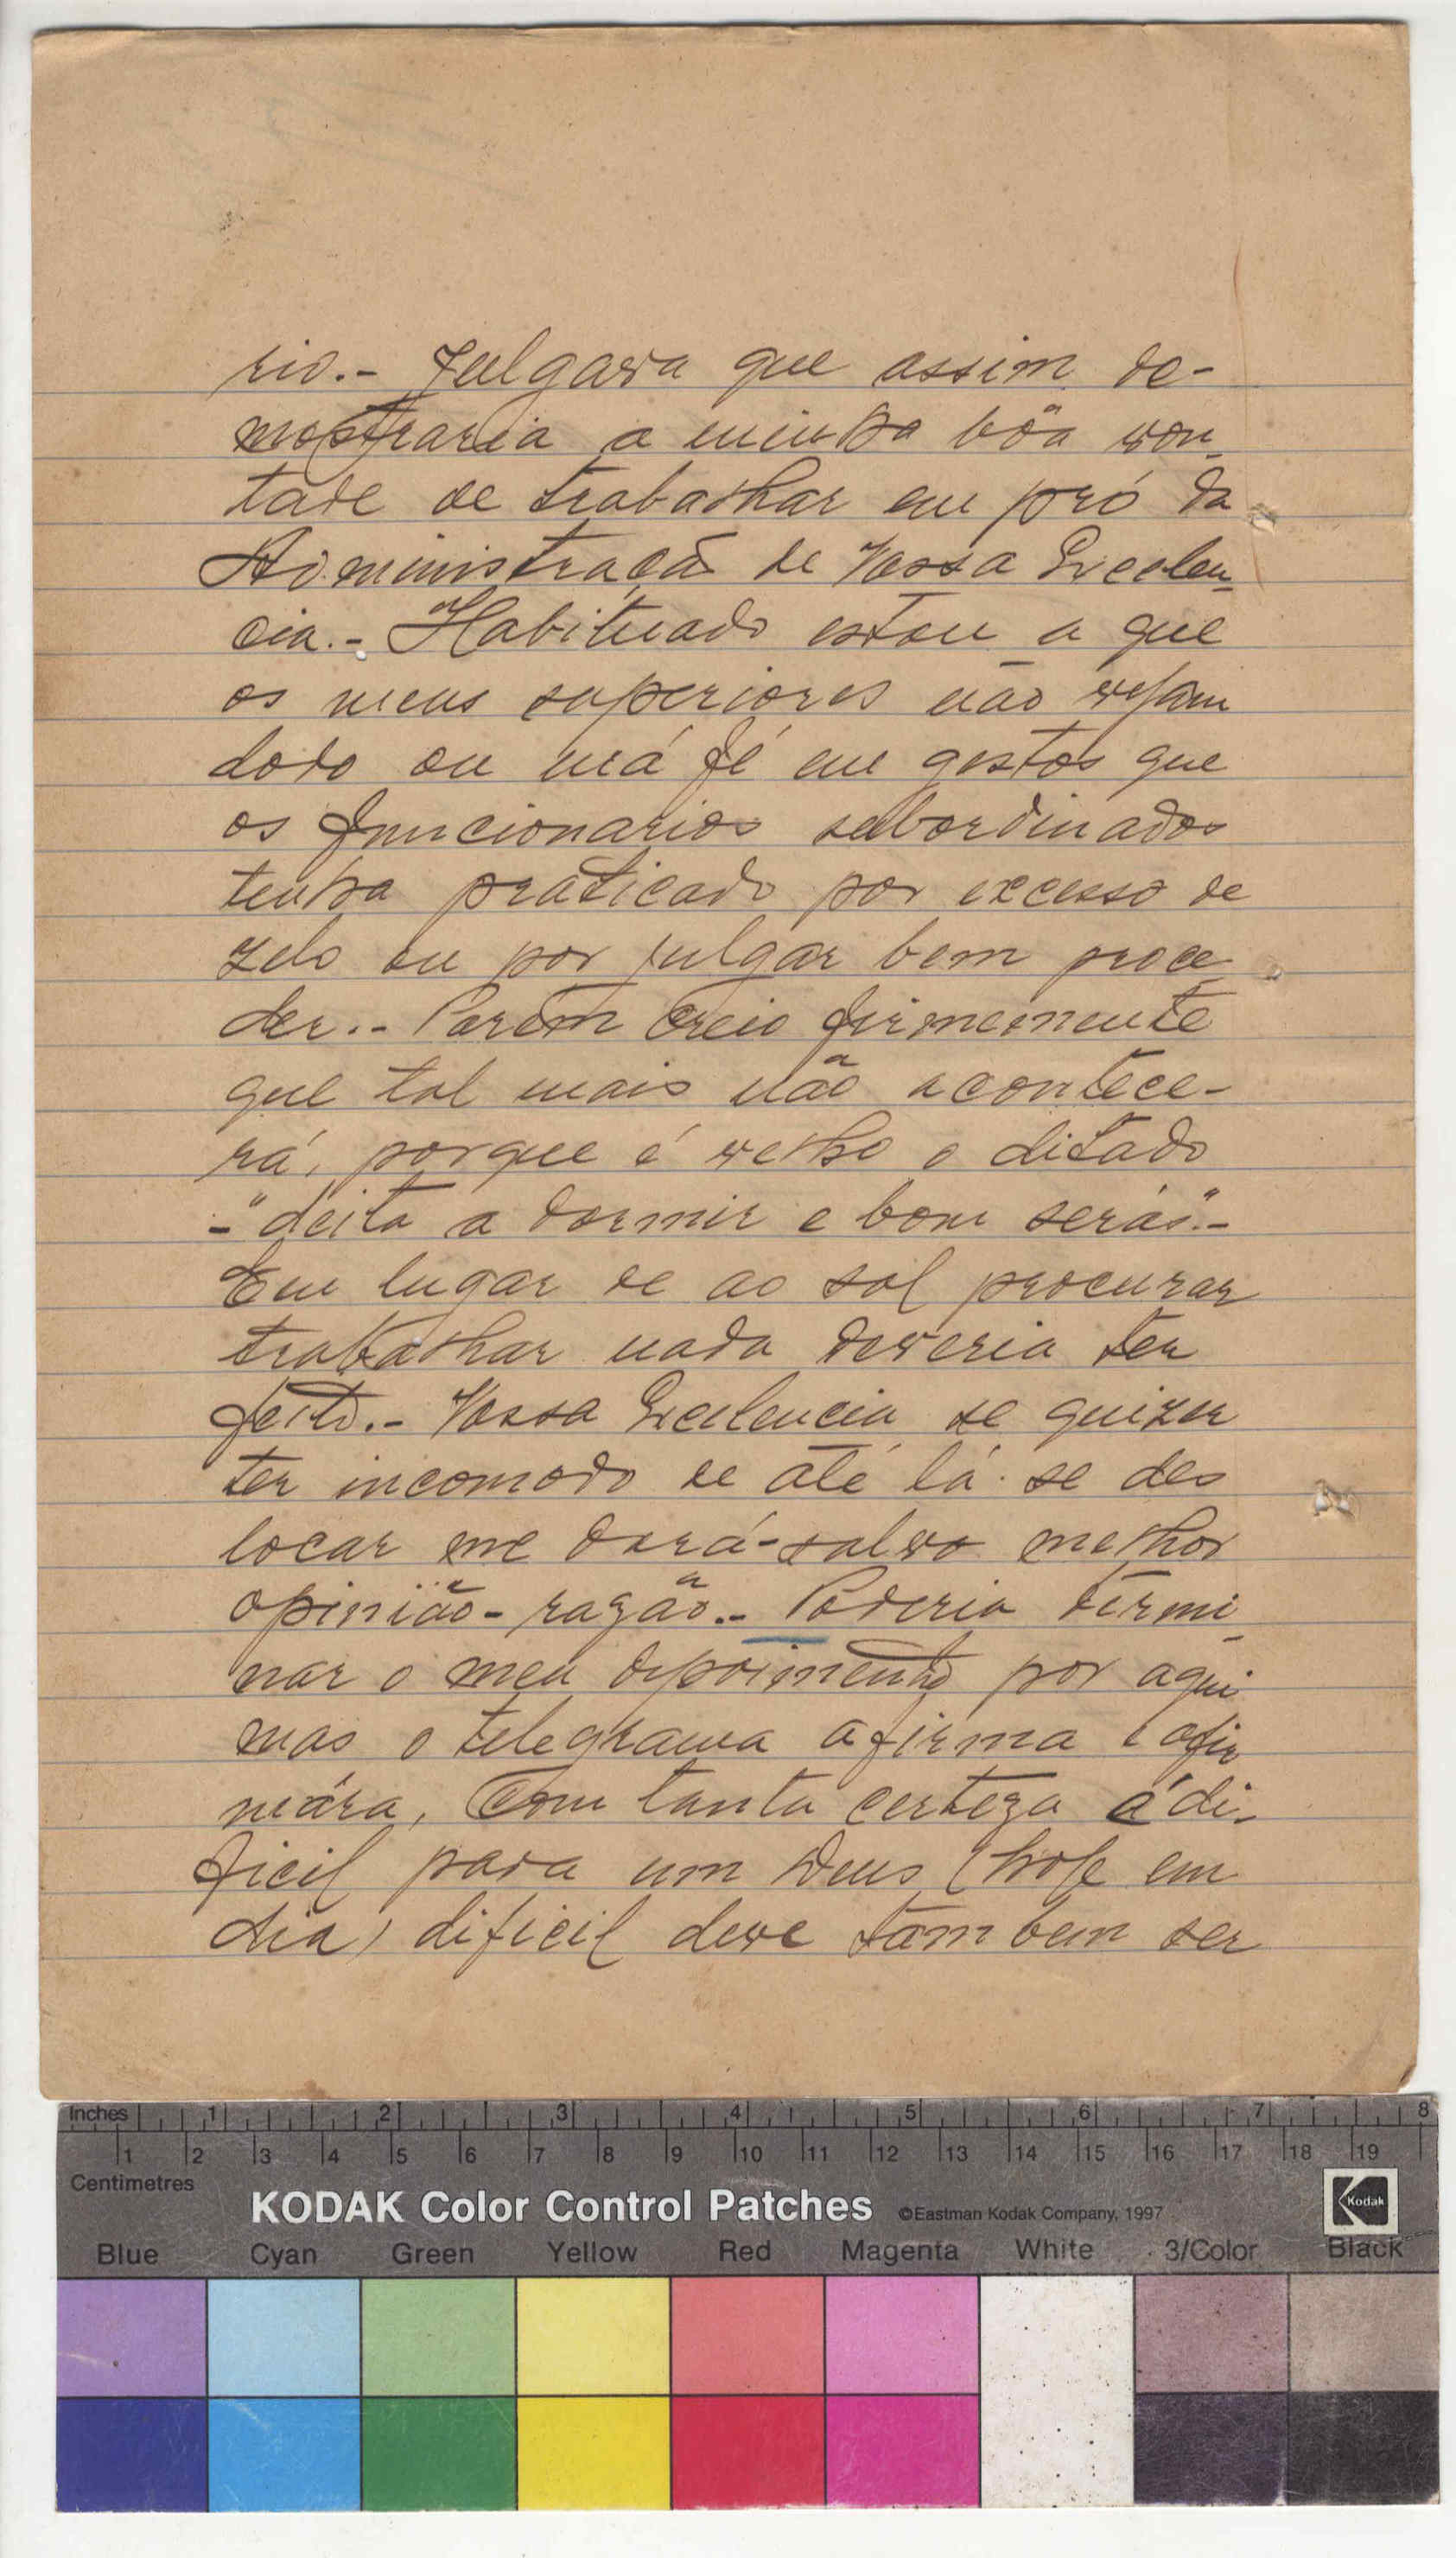 rio.- Julgava que assim de-
mostraria a minha bôa von-
tade de trabalhar em pró da
Administração de Vossa Excelen-
cia.- Habituado estou a que
os meus superiores não vejam
dolo ou má fé em gestos que
os funcionarios subordinados
tenha praticado por excesso de
zelo ou por julgar bem proce-
der.- Porem creio firmemente
que tal mais não acontece-
rá, porque é velho o ditado
-"deita a dormir e bom serás".-
Em lugar de ao sol procurar
trabalhar nada deveria ter
feito.- Vossa Excelencia se quizer
ter incomodo de até lá se des
locar me dará-salvo melhor
opinião-razão.- Poderia termi-
nar o meu depoimento por aqui
mas o telegrama afirma e afir
mára, Com tanta certeza é di-
ficil para um Deus (hoje em
dia) dificil deve tambem ser
Inches 1 2 3 4 5 6 7 8
1 2 3 4 5 6 7 8 9 10 11 12 13 14 15 16 17 18 19
Centimetres
KODAK Color Control Patches ©Eastman Kodak Company, 1997 Kodak
Blue Cyan Green Yellow Red Magenta White 3/Color Black